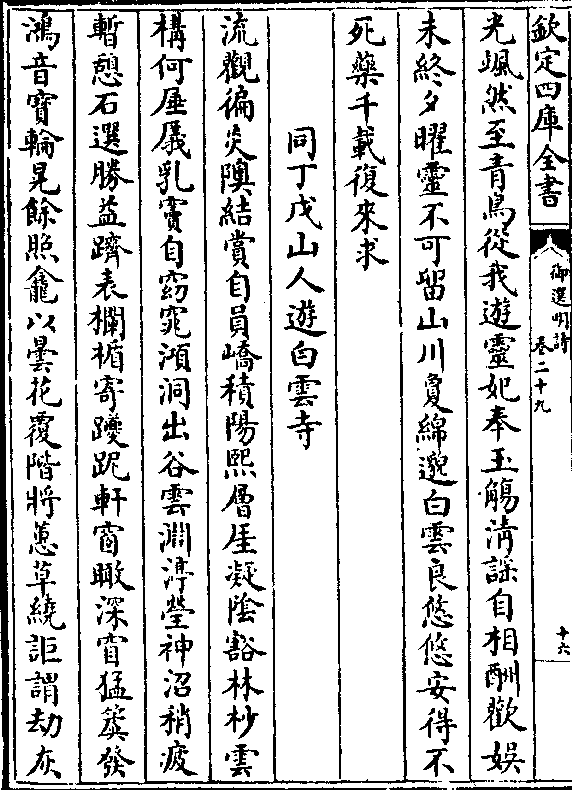 欽定四庫全書
御選明詩
卷二十九
十六
光颯然至青鳥從我遊靈妃奉玉觴清謡自相酬歡娛
未終夕曜靈不可留山川夐綿邈白雲良悠悠安得不
死藥千載復來求
同丁戊山人遊白雲寺
流觀徧炎隩結賞自員嶠積陽熙層崖凝陰豁林杪雲
構何厜㕒乳竇自窈窕澒洞出谷雲淵渟瑩神沼稍疲
暫憩石選勝益躋表欄楯寄躨跜軒窗瞰深窅猛簴發
鴻音寶輪晃餘照龕以曇花覆階將蕙草繞詎謂劫灰